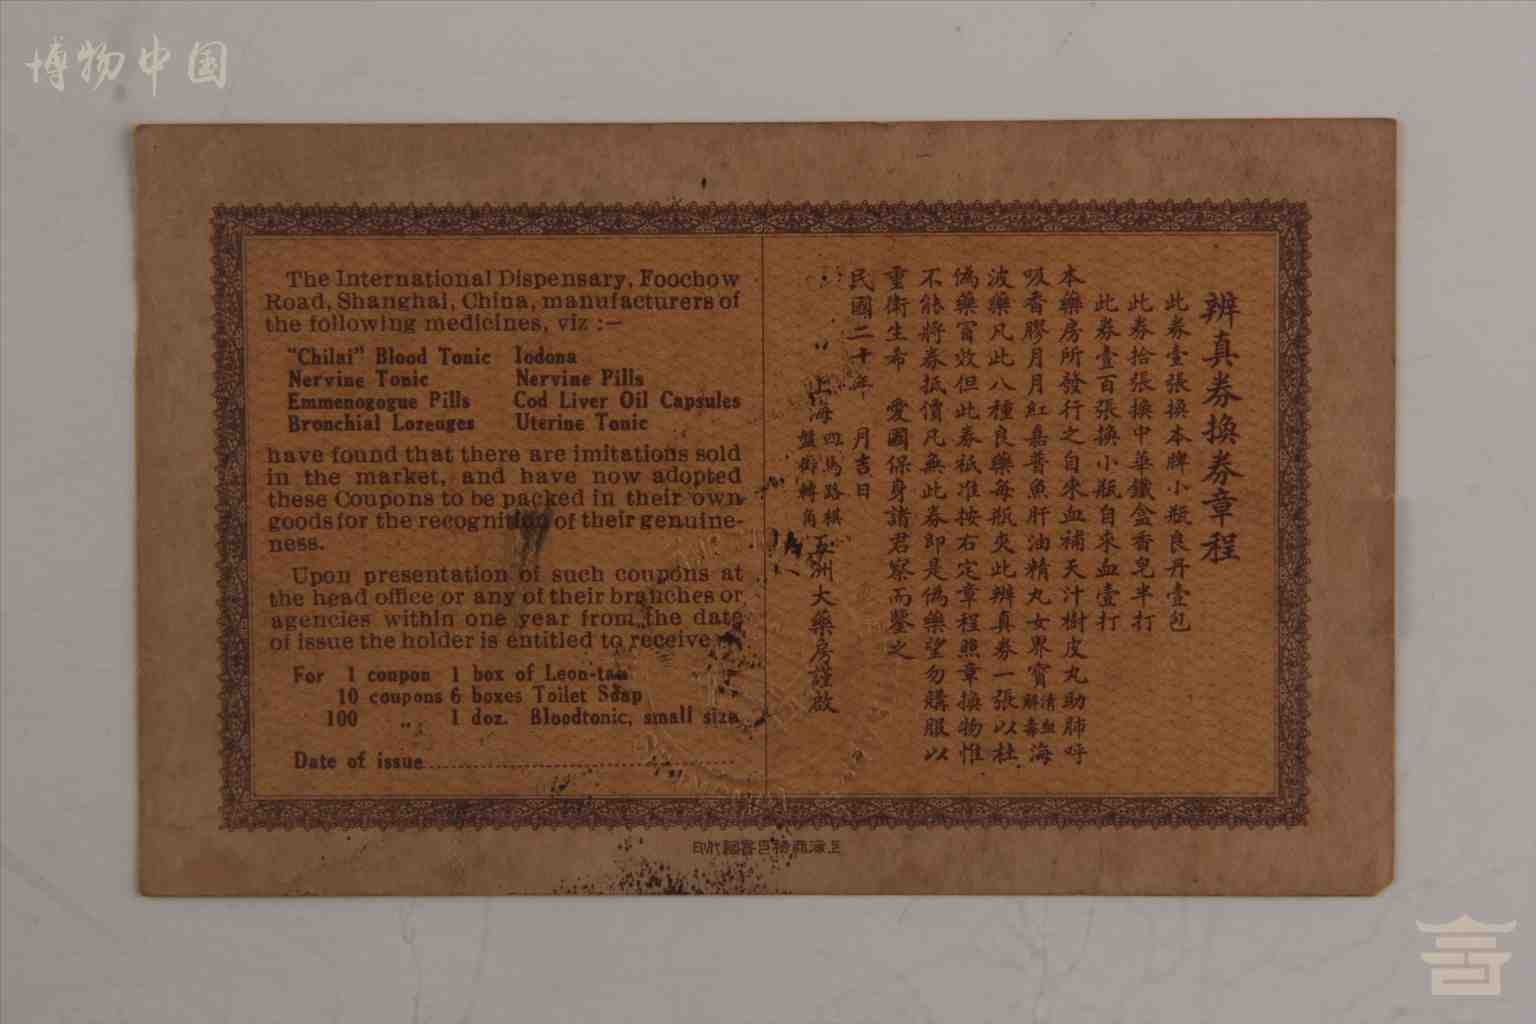 博物中国
The International Dispensary, Foochow
Road, Shanghai, China, manufacturers of
the following medicines, viz :—
"Chilai" Blood Tonic Iodona
Nervine Tonic Nervine Pills
Emmenogogue Pills Cod Liver Oil Capsules
Bronchial Lozenges Uterine Tonic
have found that there are imitations sold
in the market, and have now adopted
these Coupons to be packed in their own
goods for the recognition of their genuine-
ness.
Upon presentation of such coupons at
the head office or any of their branches or
agencies within one year from the date
of issue the holder is entitled to receive
For 1 coupon 1 box of Leon-tan
10 coupons 6 boxes Toilet Soap
100 „ 1 doz. Bloodtonic, small size
Date of issue
辨真券換券章程
此券壹張換本牌小瓶良丹壹包
此券拾張換中華鐵盒香皂半打
此券壹百張換小瓶自來血壹打
本藥房所發行之自來血補天汁樹皮丸助肺呼
吸香膠月月紅嘉普魚肝油精丸女界寶清血解毒海
波藥凡此八種良藥每瓶夾此辨真券一張以杜
偽藥冒效但此券祇准按右定章程照章換物惟
不能將券抵價凡無此券即是偽藥望勿購服以
重衛生希 愛國保身諸君察而鑒之
民國二十年 月吉日
上海四馬路棋盤街轉角五洲大藥房謹啟